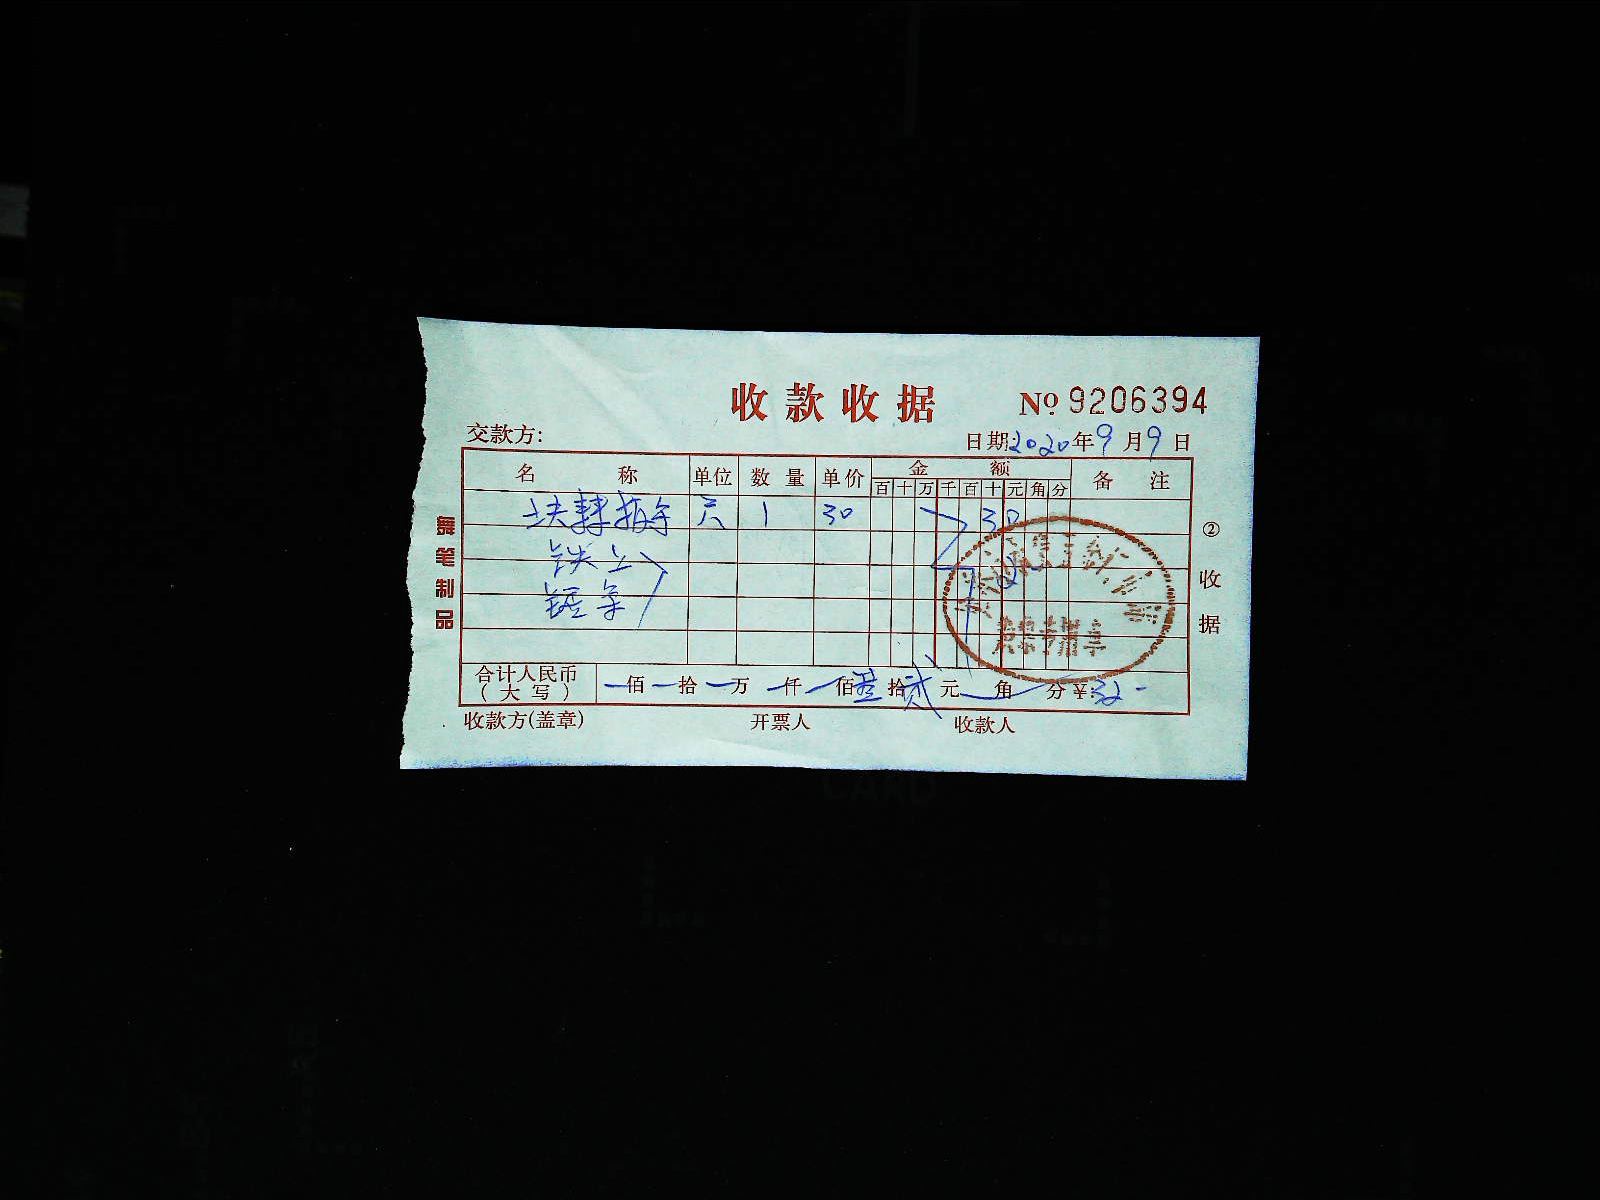 收款收据
№ 9206394
交款方:
日期:2020年9月9日
名称 单位 数量 单价 金额 备注
百 十 万 千 百 十 元 角 分
扳手 只 1 30 30
铁
锯条
合计人民币(大写) 佰 拾 万 仟 佰 叁拾贰元 角 分 ¥:32-
收款方(盖章) 开票人 收款人
舞笔制品
②收据